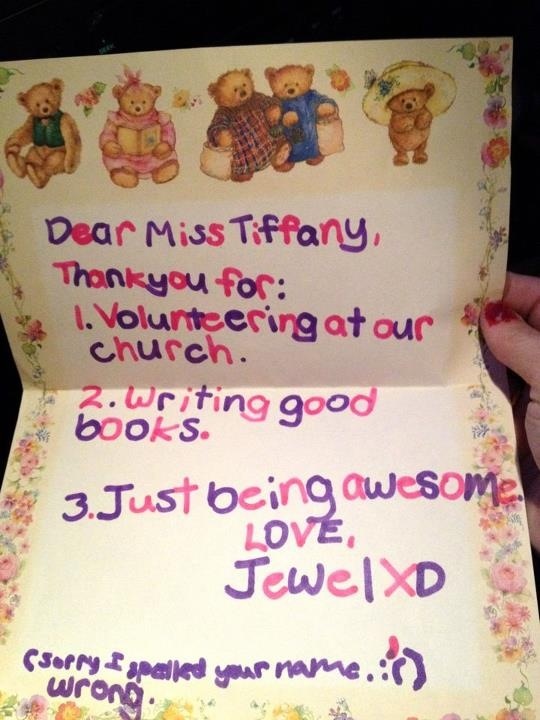 Dear Miss Tiffany,
Thankyou for:
1. Volunteering at our
church.
2. Writing good
books.
3. Just being awesome.
LOVE,
Jewel XD
(Sorry I spelled your name. :'()
wrong.